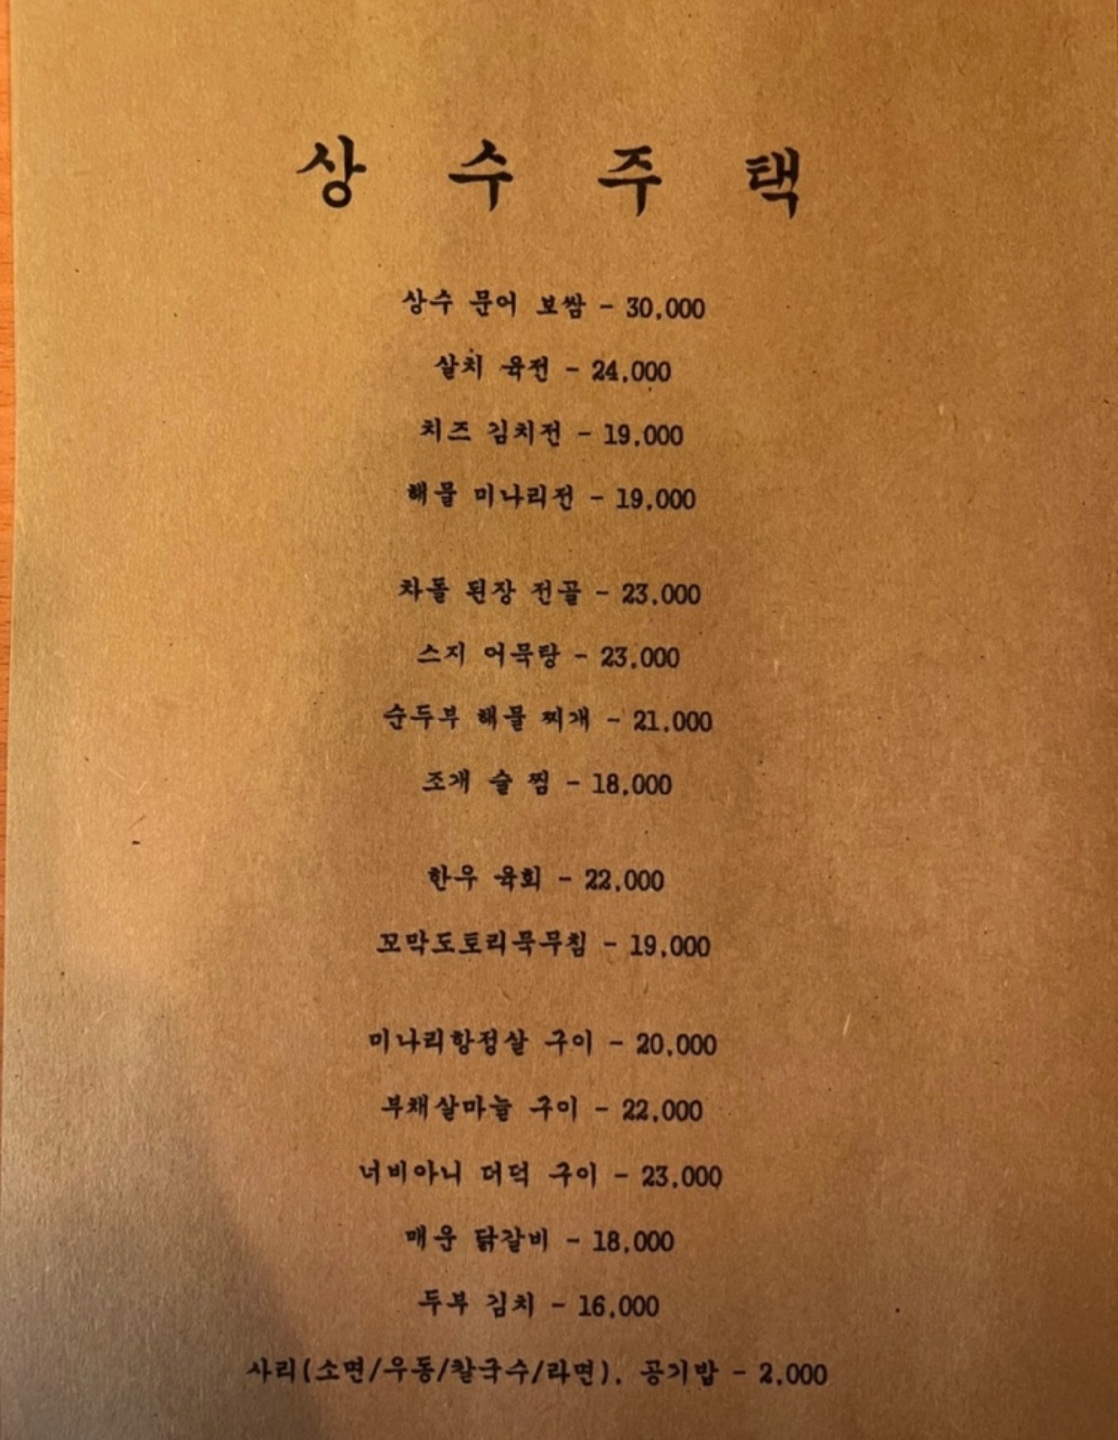 상 수 주 택
상수 문어 보쌈 - 30,000
살치 육전 - 24,000
치즈 김치전 - 19,000
해물 미나리전 - 19,000
차돌 된장 전골 - 23,000
스지 어묵탕 - 23,000
순두부 해물 찌개 - 21,000
조개 술 찜 - 18,000
한우 육회 - 22,000
꼬막도토리묵무침 - 19,000
미나리항정살 구이 - 20,000
부채살마늘 구이 - 22,000
너비아니 더덕 구이 - 23,000
매운 닭갈비 - 18,000
두부 김치 - 16,000
사리(소면/우동/칼국수/라면), 공기밥 - 2,000